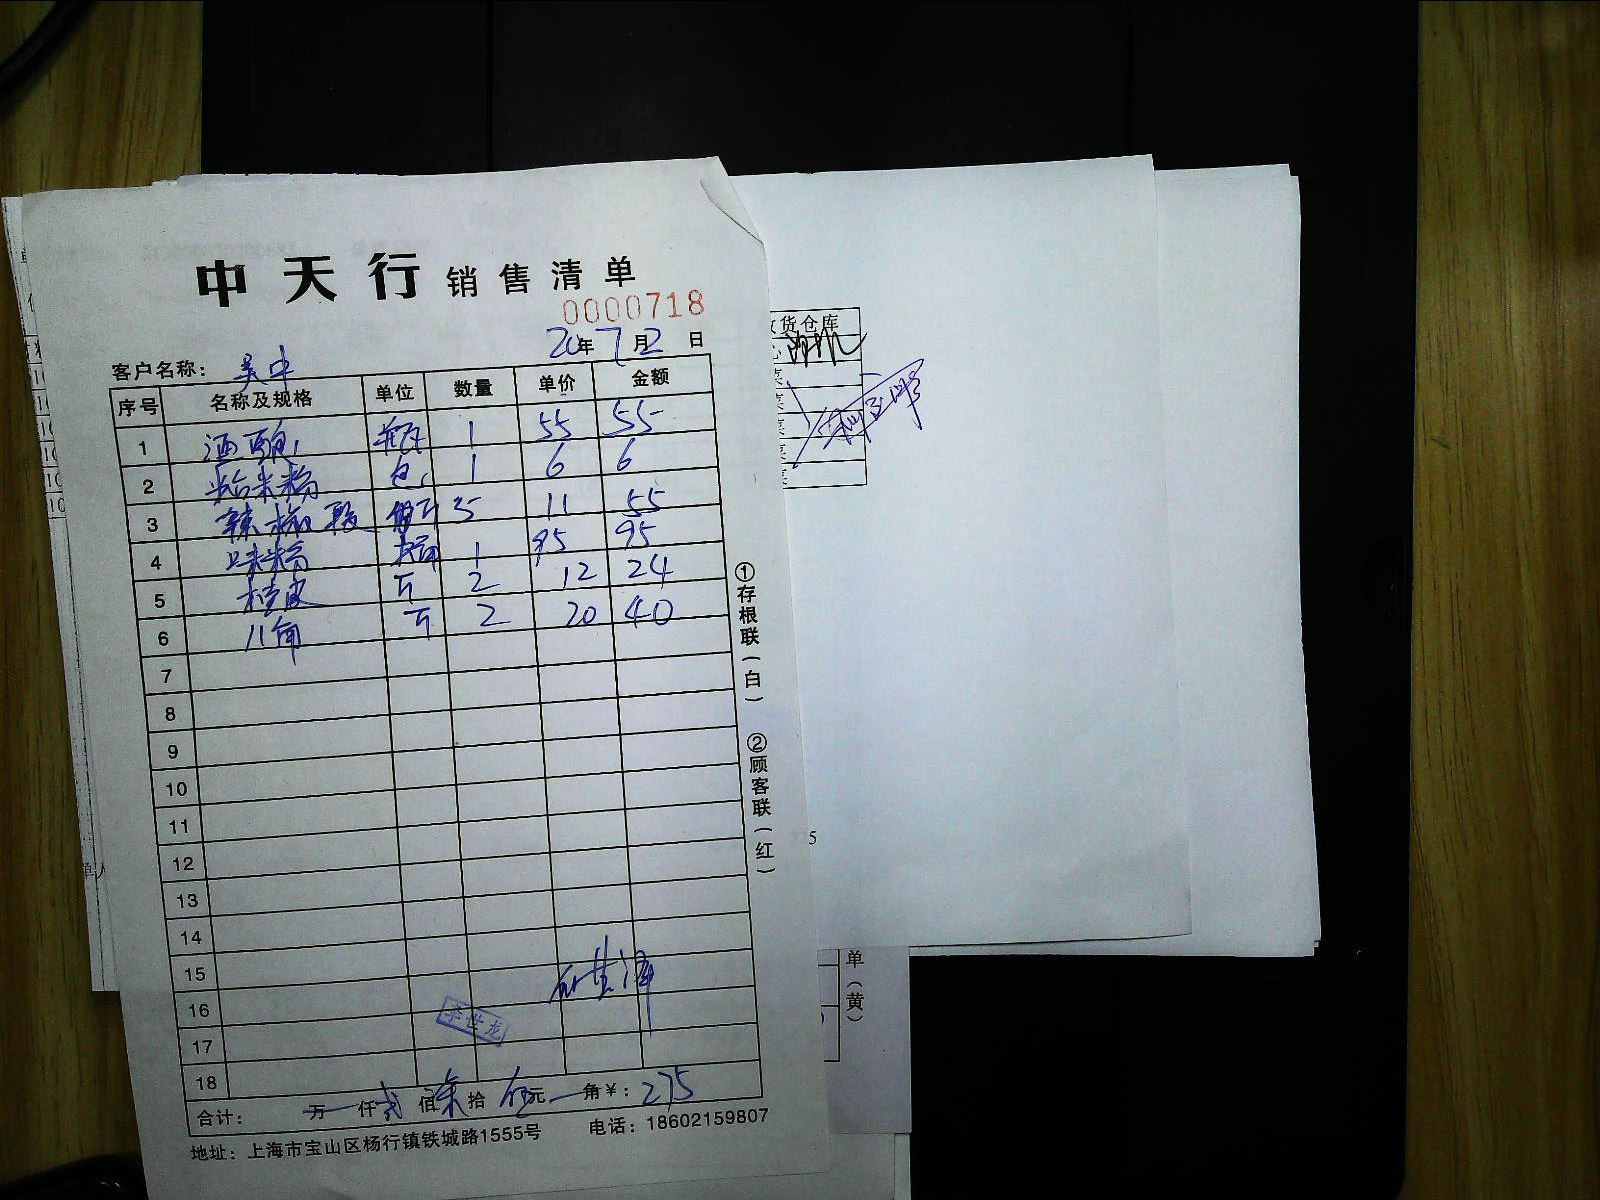 中天行 销售清单
0000718
20年7月2日
客户名称： 吴中
序号 名称及规格 单位 数量 单价 金额
1 酒酿 瓶 1 55 55-
2 粘米粉 包 1 6 6
3 辣椒段 斤 5 11 55
4 味粉 1 95 95
5 桂皮 斤 2 12 24
6 八角 斤 2 20 40
7
8
9
10
11
12
13
14
15
16
李世龙
17
18
合计： 万 仟 贰 佰 柒 拾 伍 元 角 ￥: 275
地址：上海市宝山区杨行镇铁城路1555号 电话：18602159807
①存根联（白） ②顾客联（红）
货仓库
菜
菜
菜
菜
单（黄）